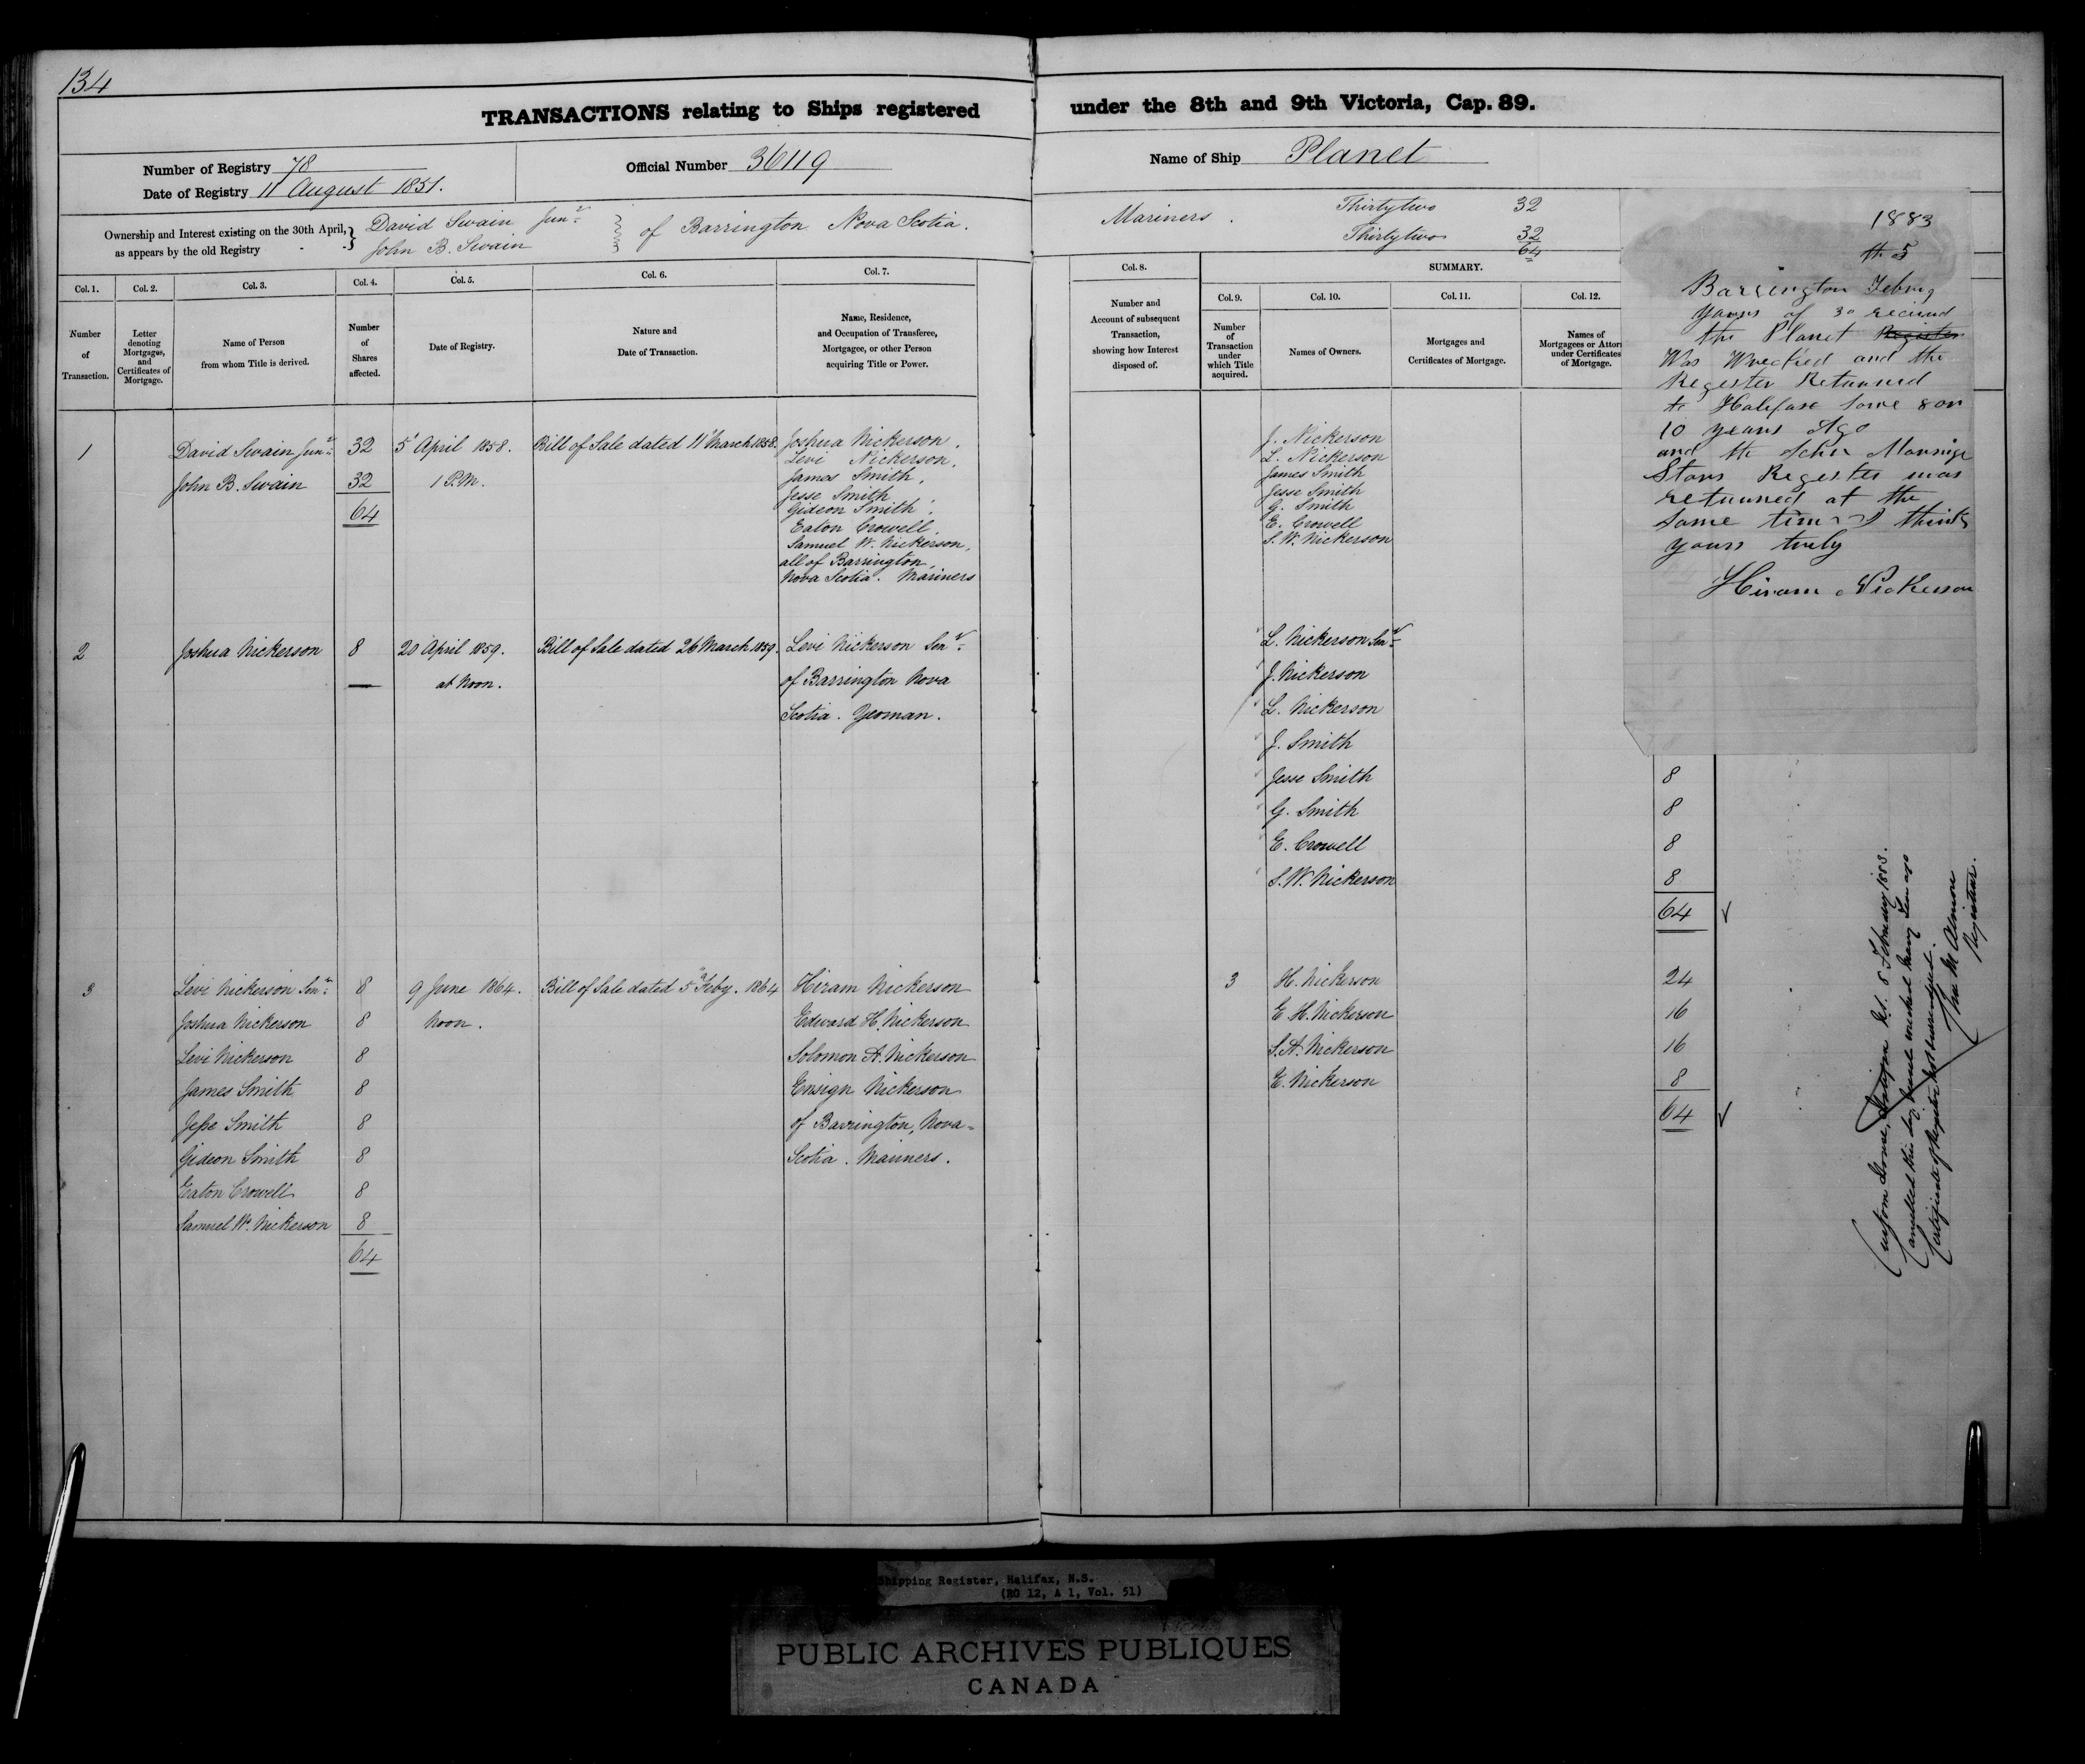 134
TRANSACTIONS relating to Ships registered under the 8th and 9th Victoria, Cap. 89.
Number of Registry 78
Date of Registry 11 August 1851.
Official Number 36119
Name of Ship Planet
Ownership and Interest existing on the 30th April, as appears by the old Registry
David Swain Junr
John B. Swain
of Barrington Nova Scotia.
Mariners.
Thirtytwo 32
Thirtytwo 32
64
Col. 1.
Number of Transaction.
Col. 2.
Letter denoting Mortgages, and Certificates of Mortgage.
Col. 3.
Name of Person from whom Title is derived.
Col. 4.
Number of Shares affected.
Col. 5.
Date of Registry.
Col. 6.
Nature and Date of Transaction.
Col. 7.
Name, Residence, and Occupation of Transferee, Mortgagee, or other Person acquiring Title or Power.
Col. 8.
Number and Account of subsequent Transaction, showing how Interest disposed of.
SUMMARY.
Col. 9.
Number of Transaction under which Title acquired.
Col. 10.
Names of Owners.
Col. 11.
Mortgages and Certificates of Mortgage.
Col. 12.
Names of Mortgagees or Attor
under Certificates of Mortgage.
1
David Swain Junr 32
John B. Swain 32
64
5 April 1858.
1 P.M.
Bill of Sale dated 11 March 1858.
Joshua Nickerson,
Levi Nickerson,
James Smith,
Jesse Smith,
Gideon Smith,
Eaton Crowell,
Samuel W. Nickerson,
all of Barrington,
Nova Scotia. Mariners
J. Nickerson
L. Nickerson
James Smith
Jesse Smith
G. Smith
E. Crowell
S. W. Nickerson
2
Joshua Nickerson 8
20 April 1859.
at Noon.
Bill of Sale dated 26 March 1859.
Levi Nickerson Senr
of Barrington Nova
Scotia. Yeoman.
L. Nickerson Senr
J. Nickerson
L. Nickerson
J. Smith
Jesse Smith 8
G. Smith 8
E. Crowell 8
S. W. Nickerson 8
64
3
Levi Nickerson Senr 8
Joshua Nickerson 8
Levi Nickerson 8
James Smith 8
Jesse Smith 8
Gideon Smith 8
Eaton Crowell 8
Samuel W. Nickerson 8
64
9 June 1864.
Noon.
Bill of Sale dated 5 Feby. 1864
Hiram Nickerson
Edward H. Nickerson
Solomon A. Nickerson
Ensign Nickerson
of Barrington, Nova-
Scotia. Mariners.
3
H. Nickerson 24
E. H. Nickerson 16
S. A. Nickerson 16
E. Nickerson 8
64
1883
5
Barrington Febury
yours of 30 recieved
the Planet Register
Was Wrecked and the
Register Retunred
to Halifax Some 8 or
10 years Ago
and the Schr Morning
Stars Register was
retunred at the
same time I think
yours truly
Hiram Nickerson
Custom House, Halifax N.S. 8 February 1883.
Cancelled this day, vessel wrecked many years ago
Certificate of Register not surrendered.
Wm M Almon
Registrar.
Shipping Register, Halifax, N.S.
(RG 12, A 1, Vol. 51)
PUBLIC ARCHIVES PUBLIQUES
CANADA